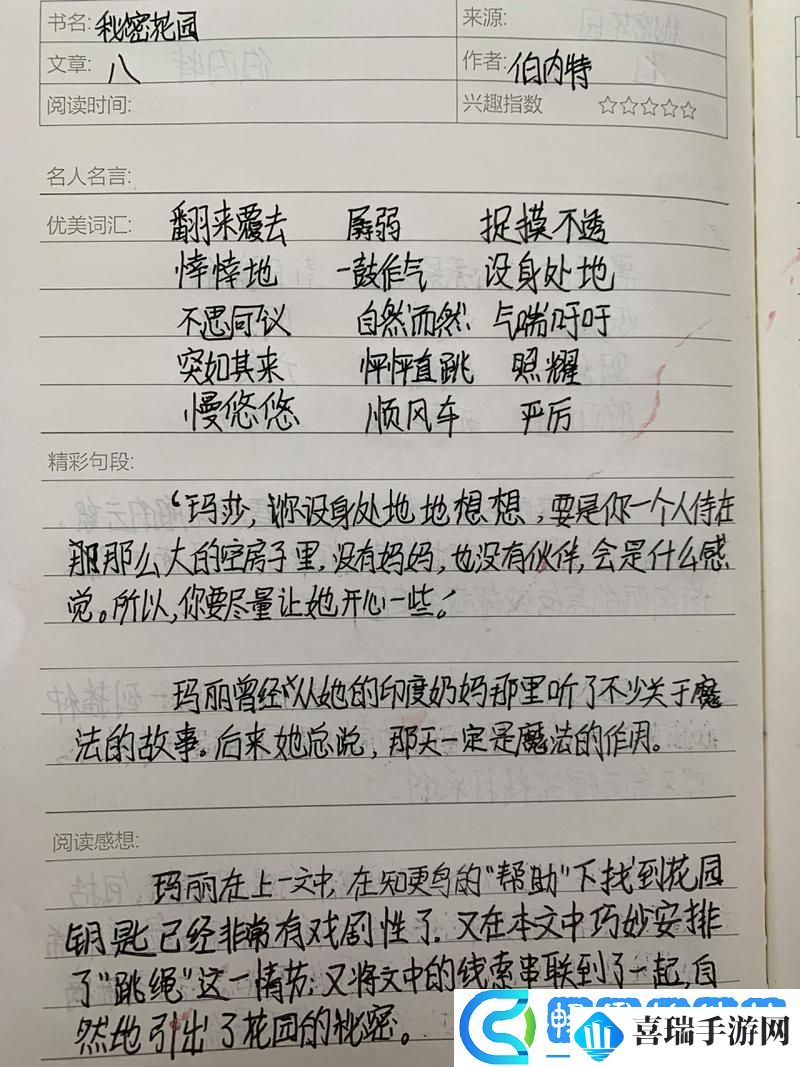 书名: 秘密花园 来源:
文章: 八 作者: 伯内特
阅读时间: 兴趣指数 ☆☆☆☆☆
名人名言:
优美词汇: 翻来覆去 孱弱 捉摸不透
悻悻地 一鼓作气 设身处地
不思同议 自然而然 气喘吁吁
突如其来 怦怦直跳 照耀
慢悠悠 顺风车 严厉
精彩句段:
“玛莎,你设身处地地想想,要是你一个人待在
那那么大的空房子里,没有妈妈,也没有伙伴,会是什么感
觉。所以,你要尽量让她开心一些!
玛丽曾经从她的印度奶妈那里听了不少关于魔
法的故事。后来她总说,那天一定是魔法的作用。
阅读感想:
玛丽在上一文中,在知更鸟的“帮助”下找到花园
钥匙已经非常有戏剧性了.又在本文中巧妙安排
了“跳绳”这一情节;又将文中的线索串联到了一起,自
然地引出了花园的秘密。
喜瑞手游网